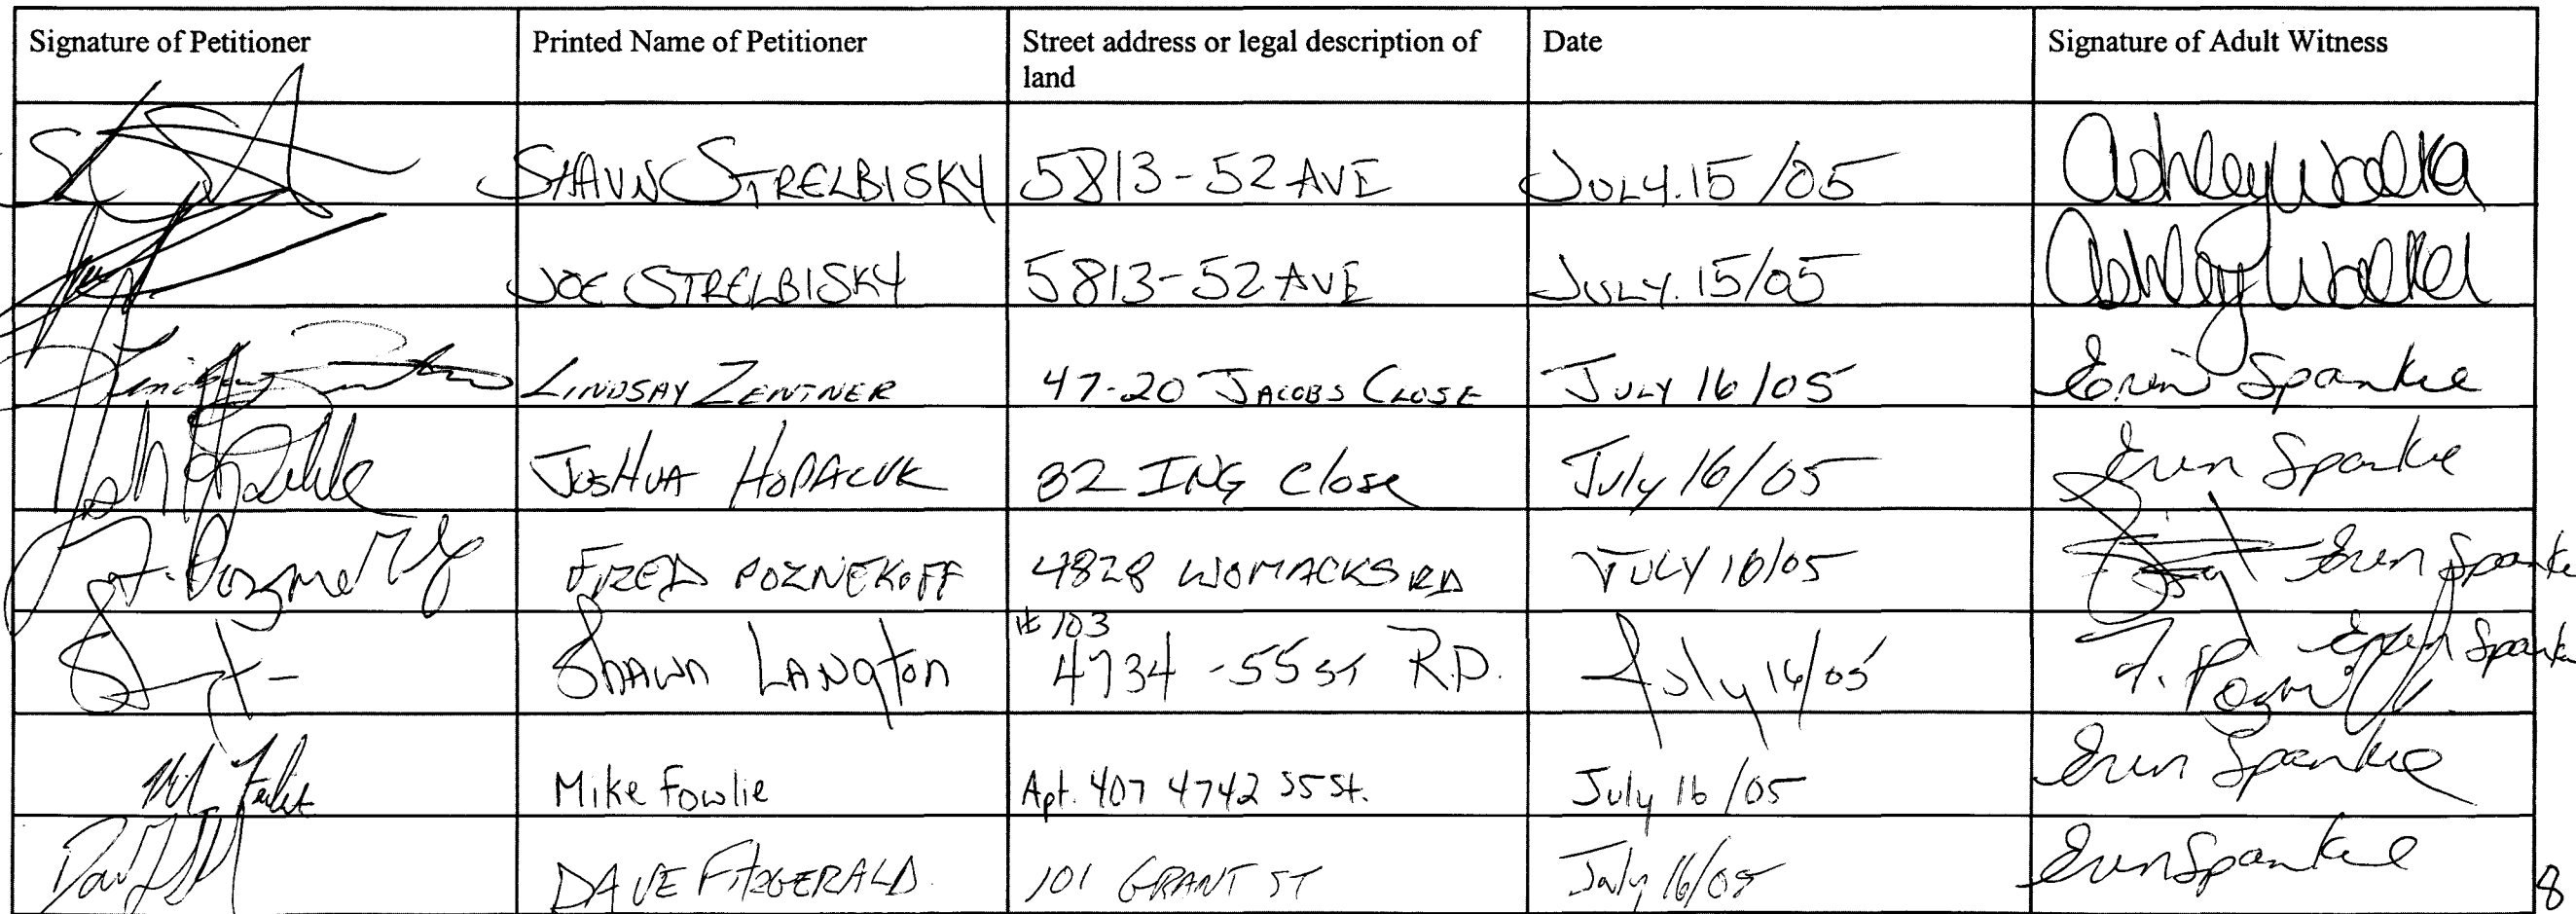 Signature of Petitioner Printed Name of Petitioner Street address or legal description of land Date Signature of Adult Witness
SHAUN STRELBISKY 5813-52 AVE JULY.15/05 Ashley Walker
JOE STRELBISKY 5813-52 AVE JULY.15/05 Ashley Walker
Lindsay Zentner LINDSAY ZENTNER 47-20 JACOBS CLOSE JULY 16/05 Erin Spankie
JOSHUA 32 ING Close July 16/05 Erin Spankie
F. Poznekoff FRED POZNEKOFF 4828 WOMACKS RD JULY 16/05 Erin Spankie
SHAWN LANGTON #103 4734-55 ST R.D. July 16/05 F. Poznekoff Erin Spankie
Mike Fowlie Apt. 407 4742 55 St. July 16/05 Erin Spankie
DAVE FITZGERALD 101 GRANT ST July 16/05 Erin Spankie
8